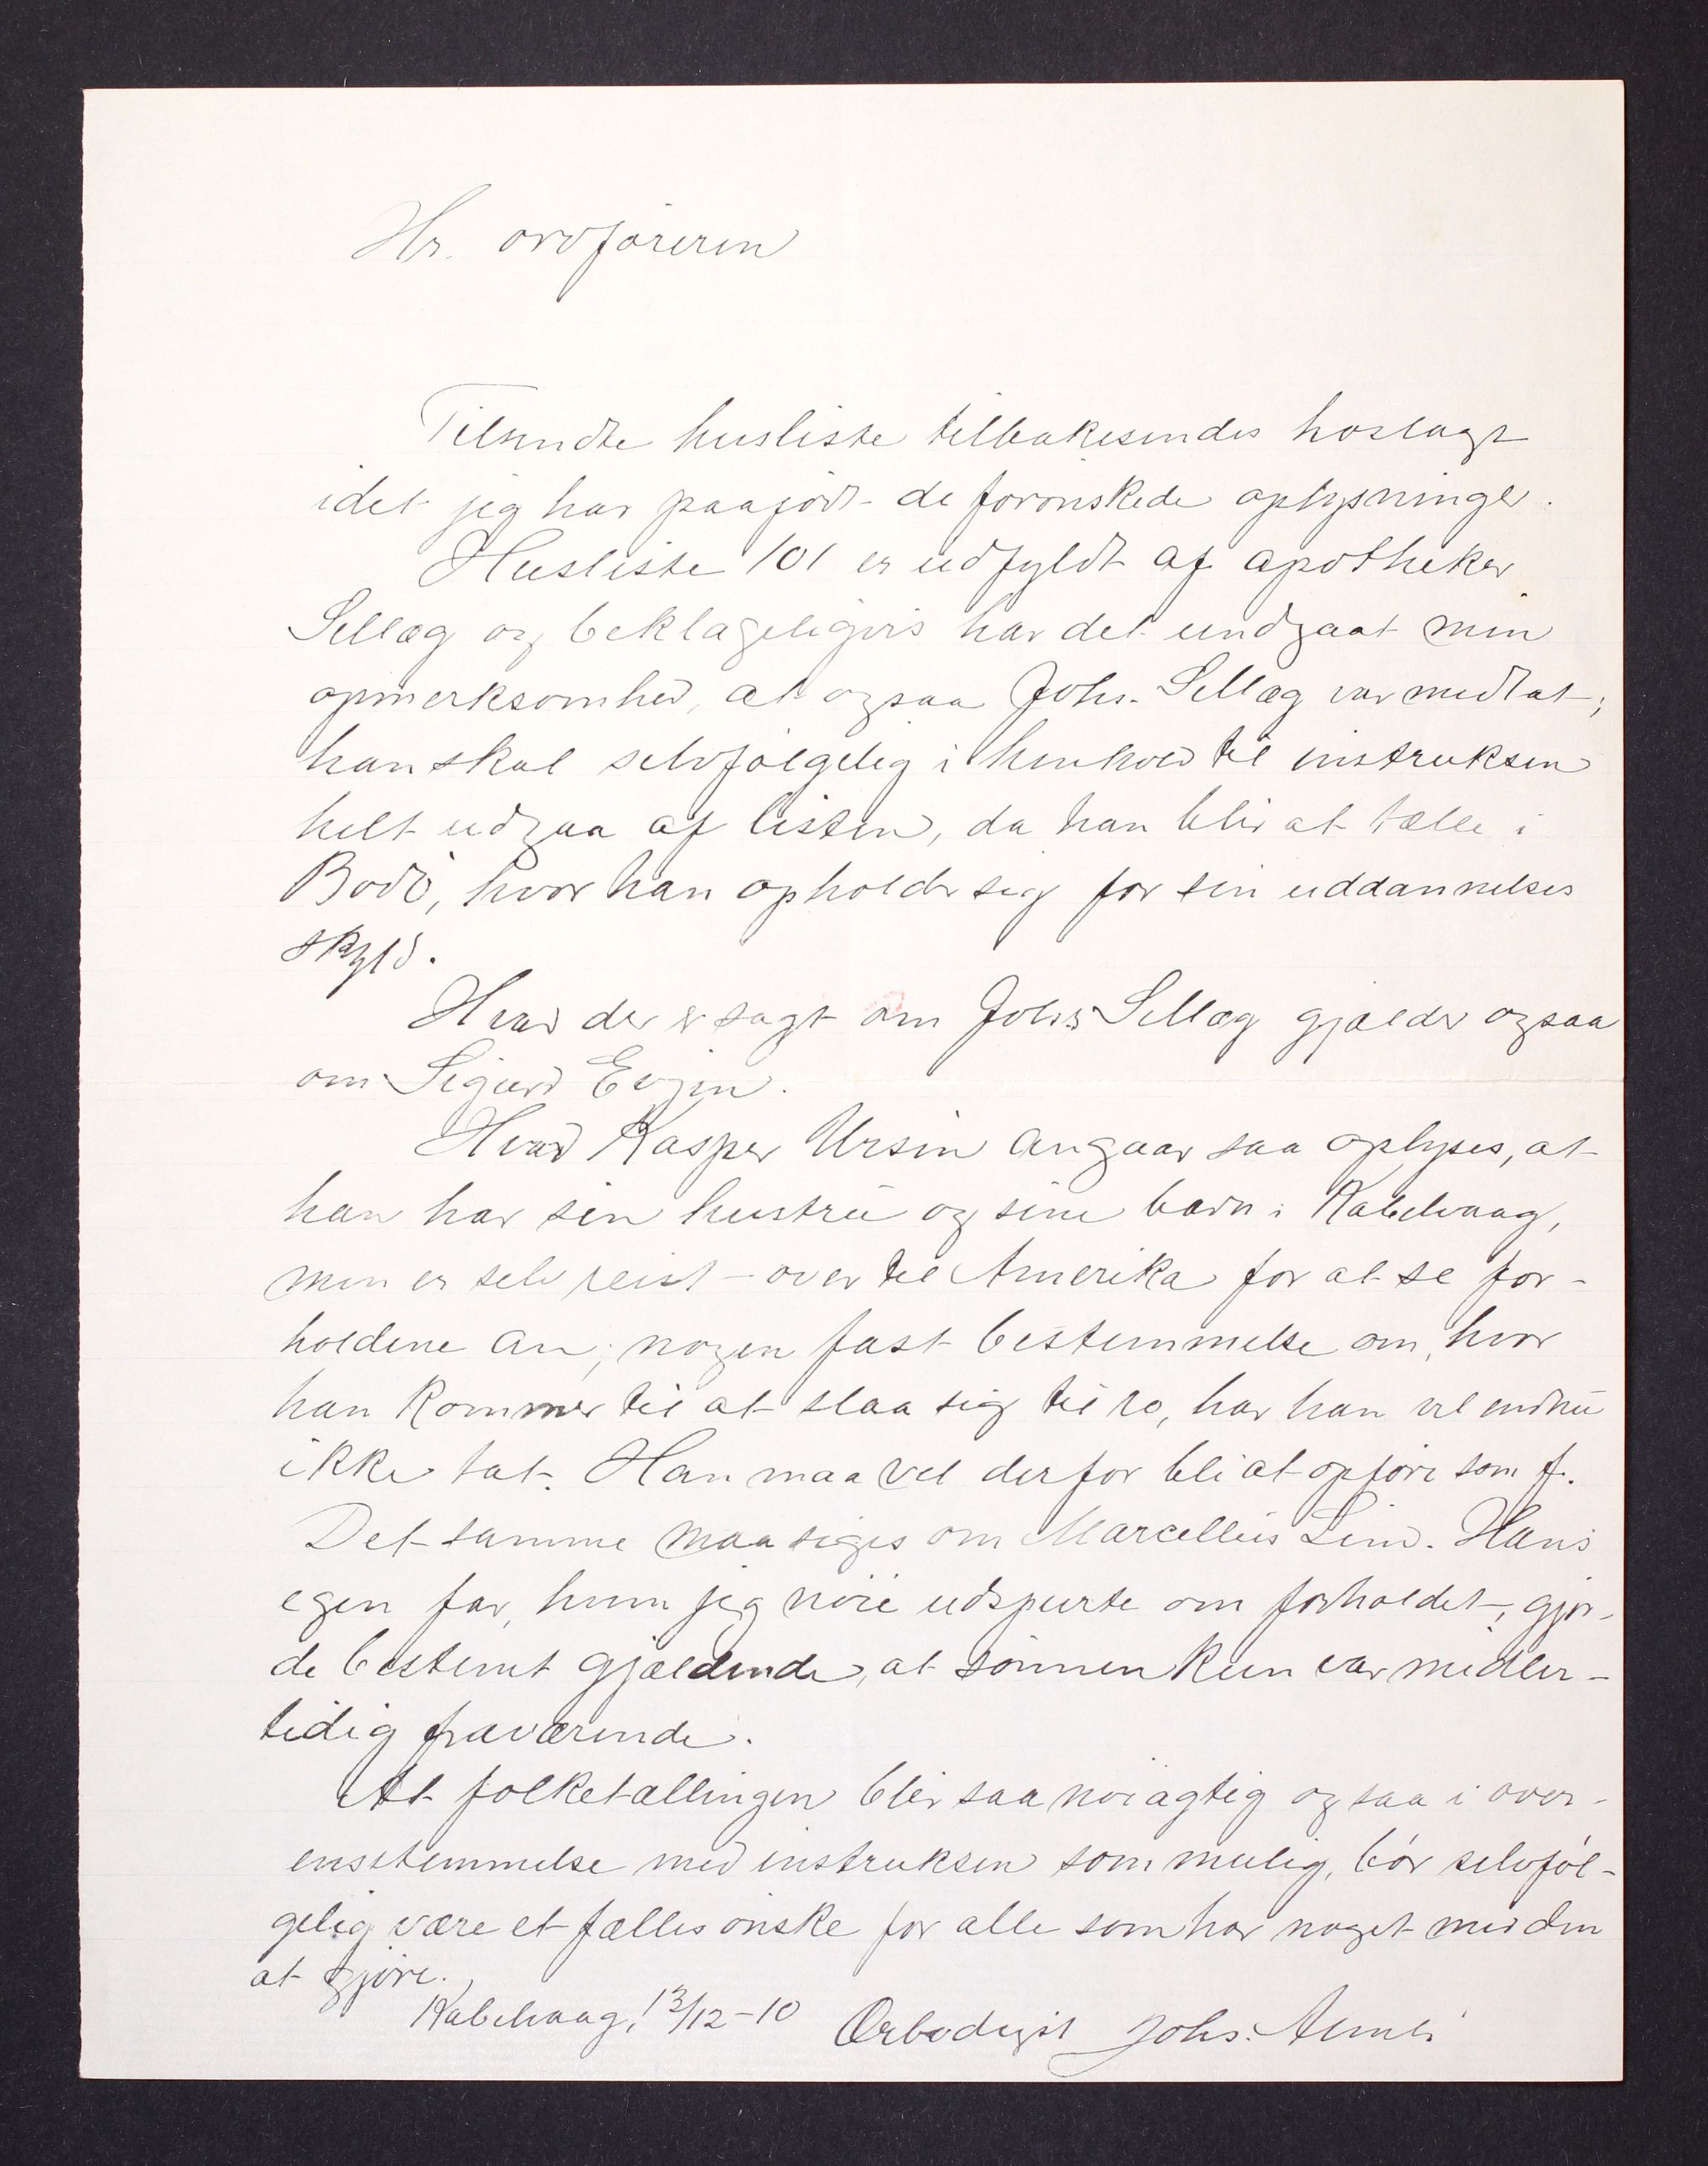 Hr. ordføreren
Tilsendte husliste tilbakesendes hoslagt
idet jeg har paaført de forønskede oplysninger.
Husliste 101 er udfyldt af apotheker
Sellæg og beklageligvis har det undgaat min
opmerksomhed, at ogsaa Johs. Sellæg var medtat;
han skal selvfølgelig i henhold til instruksen
helt udgaa af listen, da han blir at tælle i
Bodø, hvor han opholdr sig for sin uddannelses
skyld.
Hvad der er sagt om Johs Sellæg gjælder ogsaa
om Sigurd Evjen.
Hvad Kasper Ursin angaar saa oplyses, at
han har sin hustru og sine barn i Kabelvaag,
men er selv reist over til Amerika for at se for-
holdene an; nogen fast bestemmelse om, hvor
han kommer til at slaa sig til ro, har han vel endnu
ikke tat. Han maa vel derfor bli at opføre som f.
Det samme maa siges om Marcellius Lind. Hans
egen far, hvem jeg nøie udspurte om forholdet, gjor-
de bestemt gjældende, at sønnen kun var midler-
tidig fraværende.
At folketællingen blir saa nøiagtig og saa i over-
ensstemmelse med instruksen som mulig, bør selvføl-
gelig være et fælles ønske for alle som har noget med den
at gjøre.
Kabelvaag, 13/12-10 Ærbødigst Johs.